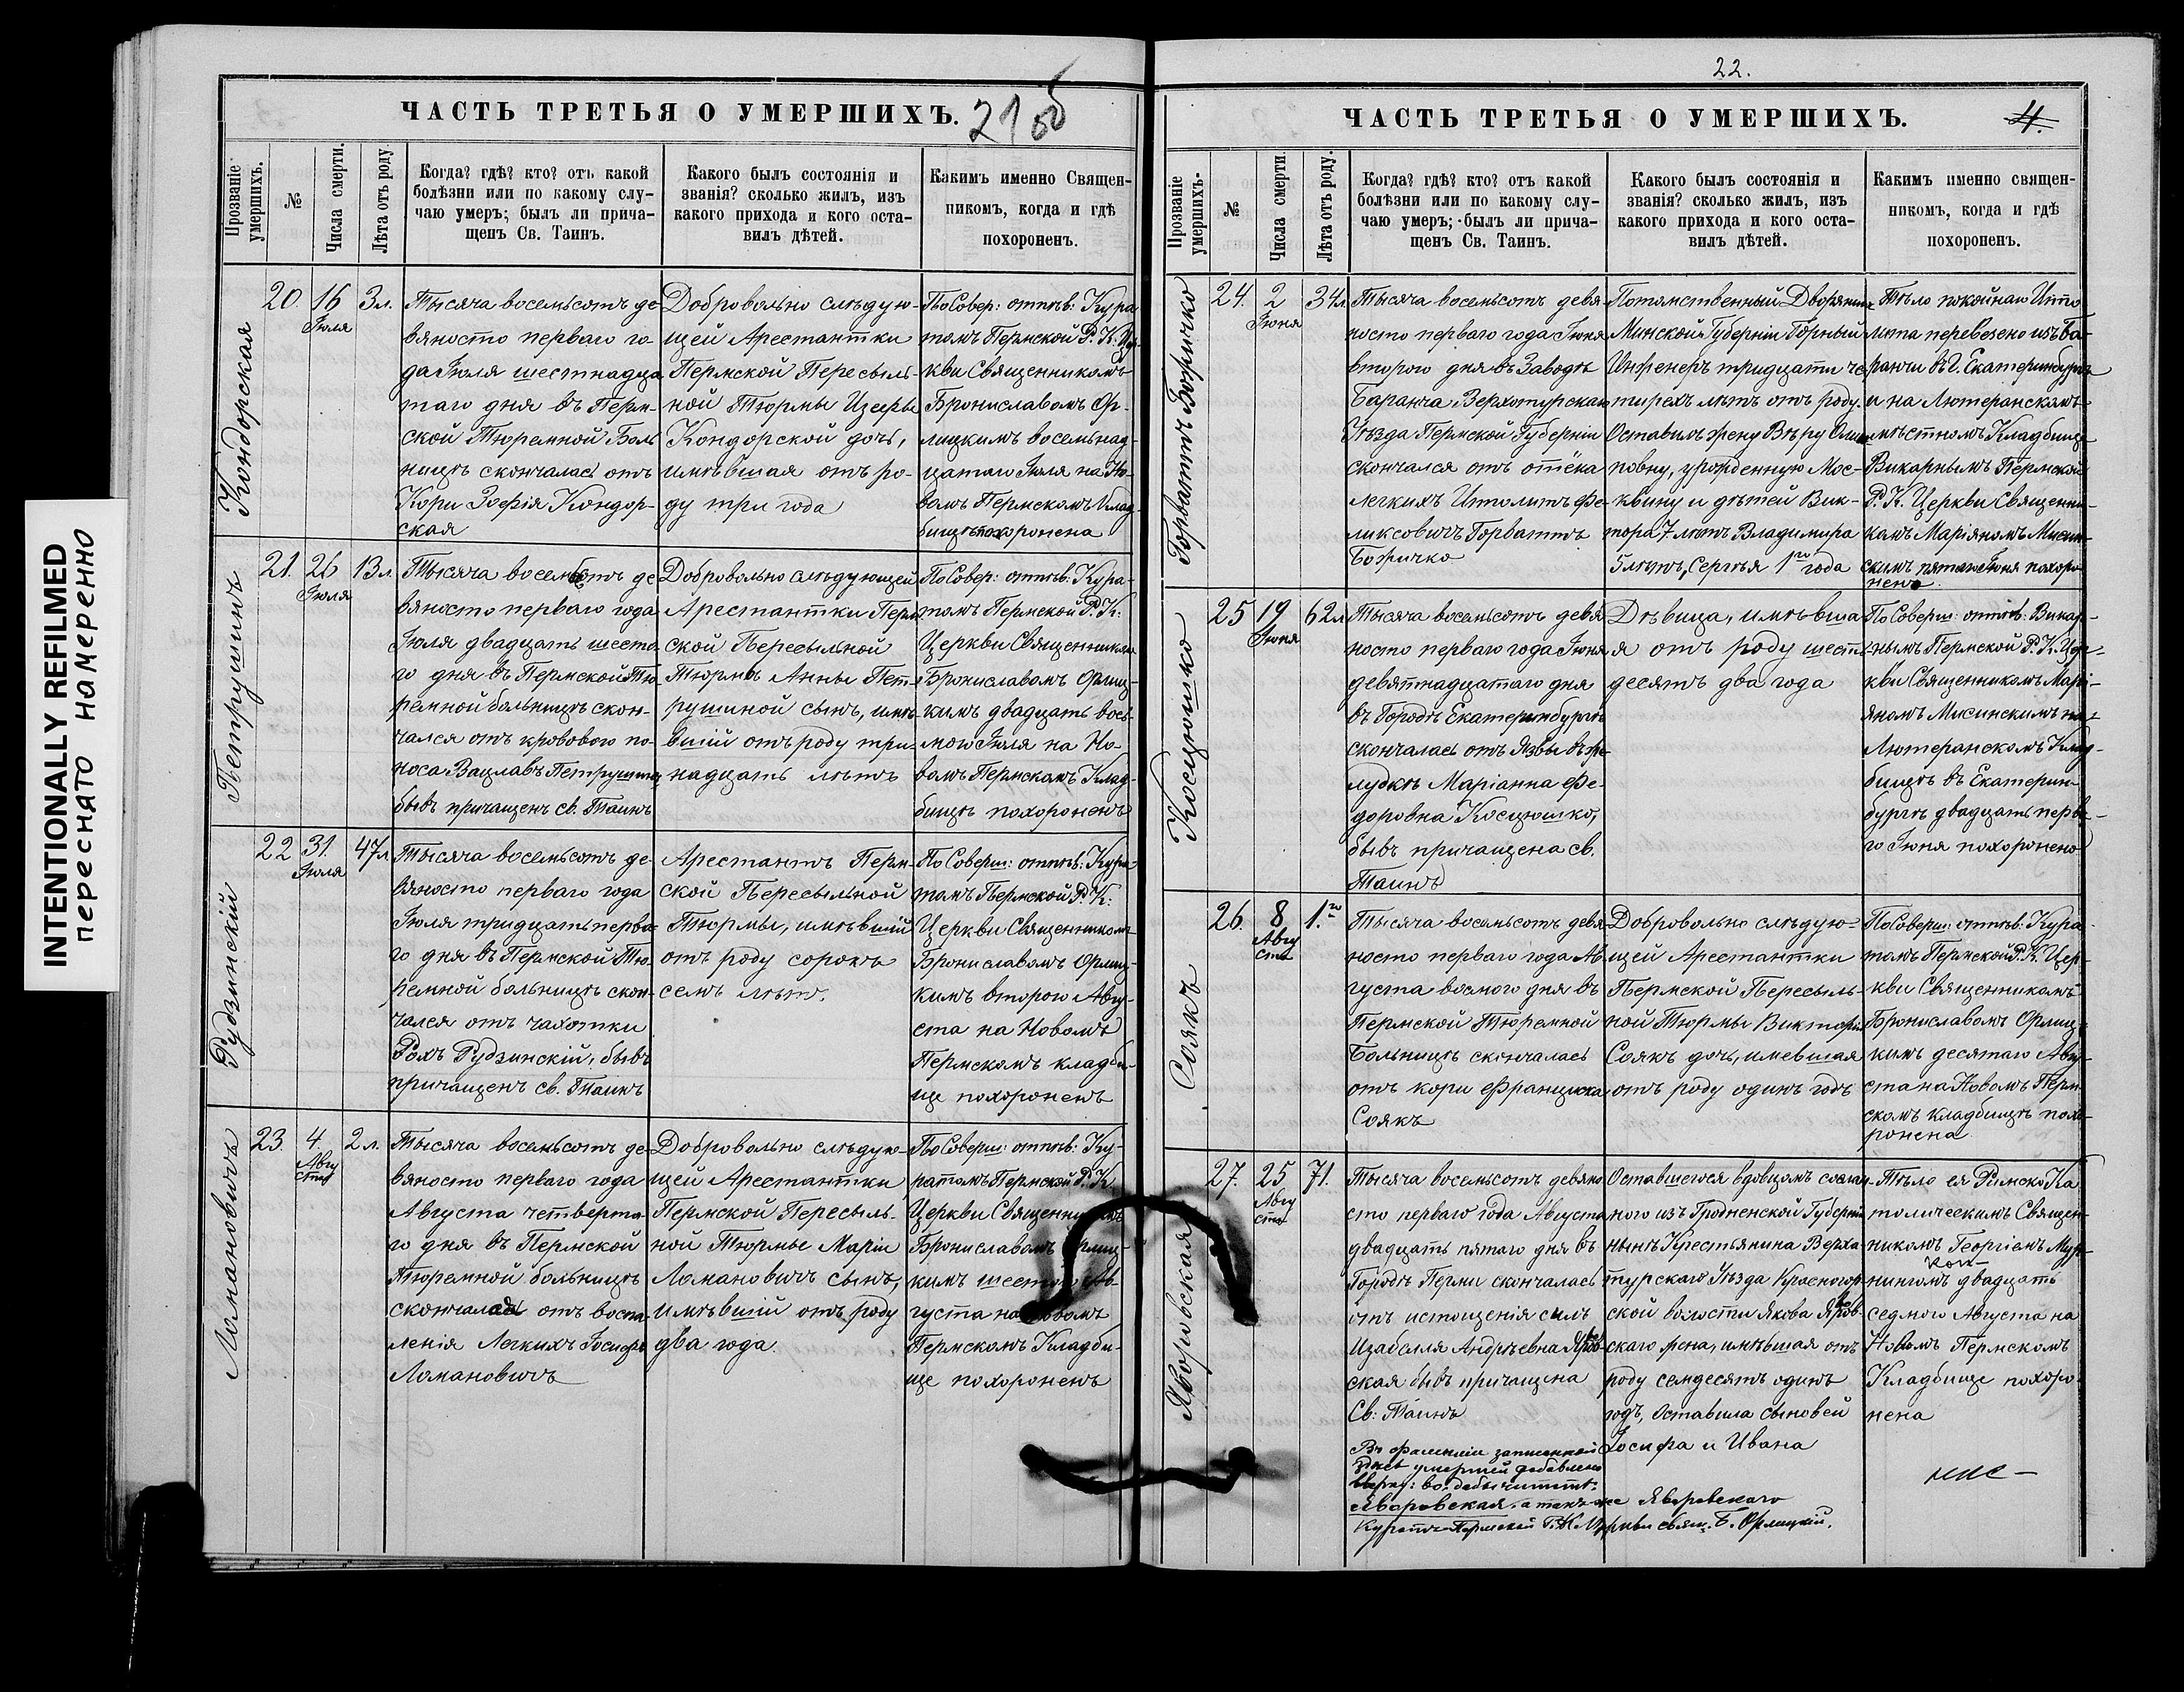 INTENTIONALLY REFILMED
переснято намеренно
ЧАСТЬ ТРЕТЬЯ О УМЕРШИХЪ.
21 об
Прозваніе умершихъ.
№
Числа смерти.
Лѣта отъ роду.
Когда? гдѣ? кто? отъ какой
болѣзни или по какому слу-
чаю умеръ; былъ ли прича-
щенъ Св. Таинъ.
Какого былъ состоянія и
званія? сколько жилъ, изъ
какого прихода и кого оста-
вилъ дѣтей.
Какимъ именно Священ-
никомъ, когда и гдѣ
похороненъ.
Кондорская
20.
16
Іюля
3 л.
Тысяча восемьсотъ де-
вяносто перваго го-
да Іюля шестнадца
таго дня въ Перм-
ской Тюремной Боль
ницѣ скончалась отъ
Кори Зофія Кондор-
ская
Добровольно слѣдую-
щей Арестантки
Пермской Пересыль-
ной Тюрмы Изефы
Кондорской дочь,
имѣвшая отъ ро-
ду три года
По Совер: отпѣв: Кура
томъ Пермской Р. К. Цер-
кви Священникомъ
Брониславомъ Ор-
лицкимъ восемьнад-
цатаго Іюля на Но-
вомъ Пермскомъ Клад-
бищѣ похоронена
Петрушинъ
21.
26
Іюля
13 л.
Тысяча восемьсотъ де
вяносто перваго года
Іюля двадцать шеста
го дня въ Пермской Тю-
ремной больницѣ скон-
чался отъ кроваваго по-
носа Вацлавъ Петрушинъ,
бывъ причащенъ св. Таинъ
Добровольно слѣдующей
Арестантки Перм
ской Пересыльной
Тюрмы Анны Пет-
рушиной сынъ, имѣ-
вшій отъ роду три-
надцать лѣтъ
По Совер: отпѣв: Кура-
томъ Пермской Р. К:
Церкви Священникомъ
Брониславомъ Орлиц-
кимъ двадцать вось-
мого Іюля на Но-
вомъ Пермскомъ Клад-
бищѣ похороненъ
Рудзинскій
22
31.
Іюля
47 л
Тысяча восемьсотъ де-
вяносто перваго года
Іюля тридцать перва-
го дня въ Пермской Тю-
ремной больницѣ скон-
чался отъ чахотки
Рохъ Рудзинскій, бывъ
причащенъ св. Таинъ
Арестантъ Перм-
ской Пересыльной
Тюрмы, имѣвшій
отъ роду сорокъ
семъ лѣтъ.
По Соверш: отпѣв: Кура-
томъ Пермской Р. К:
Церкви Священникомъ
Брониславомъ Орлиц-
кимъ второго Авгу-
ста на Новомъ
Пермскомъ кладби-
ще похороненъ
Ломановичъ
23.
4.
Авгу
ста
2 л.
Тысяча восемьсотъ де-
вяносто перваго года
Августа четверта-
го дня въ Пермской
Тюремной больницѣ
скончался отъ воспа
ленія Легкихъ Іосифъ
Ломановичъ
Добровольно слѣдую-
щей Арестантки
Пермской Пересыль-
ной Тюрмы Маріи
Ломановичъ сынъ,
имѣвшій отъ роду
два года
По Соверш: отпѣв: Ку-
ратомъ Пермской Р. К
Церкви Священникомъ
Брониславомъ Орлиц-
кимъ шестого Ав-
густа на Новомъ
Пермскомъ Кладби-
ще похороненъ
22.
ЧАСТЬ ТРЕТЬЯ О УМЕРШИХЪ.
4.
Прозваніе умершихъ.
№
Числа смерти.
Лѣта отъ роду.
Когда? гдѣ? кто? отъ какой
болѣзни или по какому слу-
чаю умеръ; былъ ли прича-
щенъ Св. Таинъ.
Какого былъ состоянія и
званія? сколько жилъ, изъ
какого прихода и кого оста-
вилъ дѣтей.
Какимъ именно священ-
никомъ, когда и гдѣ
похороненъ.
Горваттъ Божичко
24.
2
Іюня
34 л
Тысяча восемьсотъ девя
носто перваго года Іюня
второго дня въ Заводѣ
Баранча Верхотурскаго
Уѣзда Пермской Губерніи
скончался отъ отёка
легкихъ Ипполитъ Фе-
ликсовичъ Горваттъ
Божичко
Потомственный Дворянинъ
Минской Губерніи Горный
Инженеръ тридцати че
тырехъ лѣтъ отъ роду.
Оставилъ жену Вѣру
повну, урожденную Мос-
квину и дѣтей Вик-
тора 7 лѣтъ Владимира
5 лѣтъ, Сергѣя 1го года
Тѣло покойнаго Иппо
лита перевезено изъ Ба-
ранчи въ г. Екатеринбургъ
и на Лютеранскомъ
мѣстномъ Кладбище
Викарнымъ Пермской
Р. К. Церкви Священни-
комъ Маріяномъ Мисин-
скимъ пятаго Іюня похоро
ненъ
Косцюшко
25
19
Іюня
62 л
Тысяча восемьсотъ девя
носто перваго года Іюня
девятнадцатаго дня
въ Городѣ Екатеринбургѣ
скончалась отъ Язвы въ же
лудкѣ Маріанна Фе-
доровна Косцюшко,
бывъ причащена св.
Таинъ
Дѣвица, имѣвша
я отъ роду шестъ
десятъ два года
По Соверш: отпѣв: Викар-
нымъ Пермской Р. К. Цер-
кви Священникомъ Марі-
яномъ Мисинскимъ на
Лютеранскомъ Клад-
бищѣ въ Екатерин-
бургѣ двадцать перва-
го Іюня похоронено
Соякъ
26.
8
Авгу
ста
1.го
Тысяча восемьсотъ девя
носто перваго года Ав
густа восмого дня въ
Пермской Тюремной
Больницѣ скончалась
отъ кори Франциска
Соякъ
Добровольно слѣдую-
щей Арестантки
Пермской Пересыль-
ной Тюрмы Викторіи
Соякъ дочь, имевшая
отъ роду одинъ годъ
По Соверш: отпѣв: Кура-
томъ Пермской Р. К. Цер-
кви Священникомъ
Брониславомъ Орлиц-
кимъ десятаго Авгу-
ста на Новомъ Перм-
скомъ кладбищѣ похо-
ронена
Яворовская
27.
25
Авгу
ста
71.
Тысяча восемьсотъ девяно
сто перваго года Августа
двадцать пятаго дня въ
Городѣ Перми скончалась
отъ истощенія силъ
Изабелля Андреевна Яров-
ская бывъ причащена
Св: Таинъ
Оставшегося вдовцомъ сослан-
ного изъ Гродненской Губерніи
нынѣ Крестьянина Верхо
турскаго Уѣзда Красногор
ской волости Якова Яров-
скаго жена, имѣвшая отъ
роду семдесятъ одинъ
годъ, Оставила сыновей
Іосифа и Ивана
Тѣло ея Римско Ка
толическимъ Священ-
никомъ Георгіемъ Мур-
нингомъ двадцать
седмого Августа на
Новомъ Пермскомъ
Кладбище похоро
нена
Въ фамиліи записанной
здѣсь умершей добавлено
вверху: во. дабы читать:
Яворовская, а также Яворовскаго
Куратъ Пермской Р. К. Церкви свящ. Б. Орлицкій.